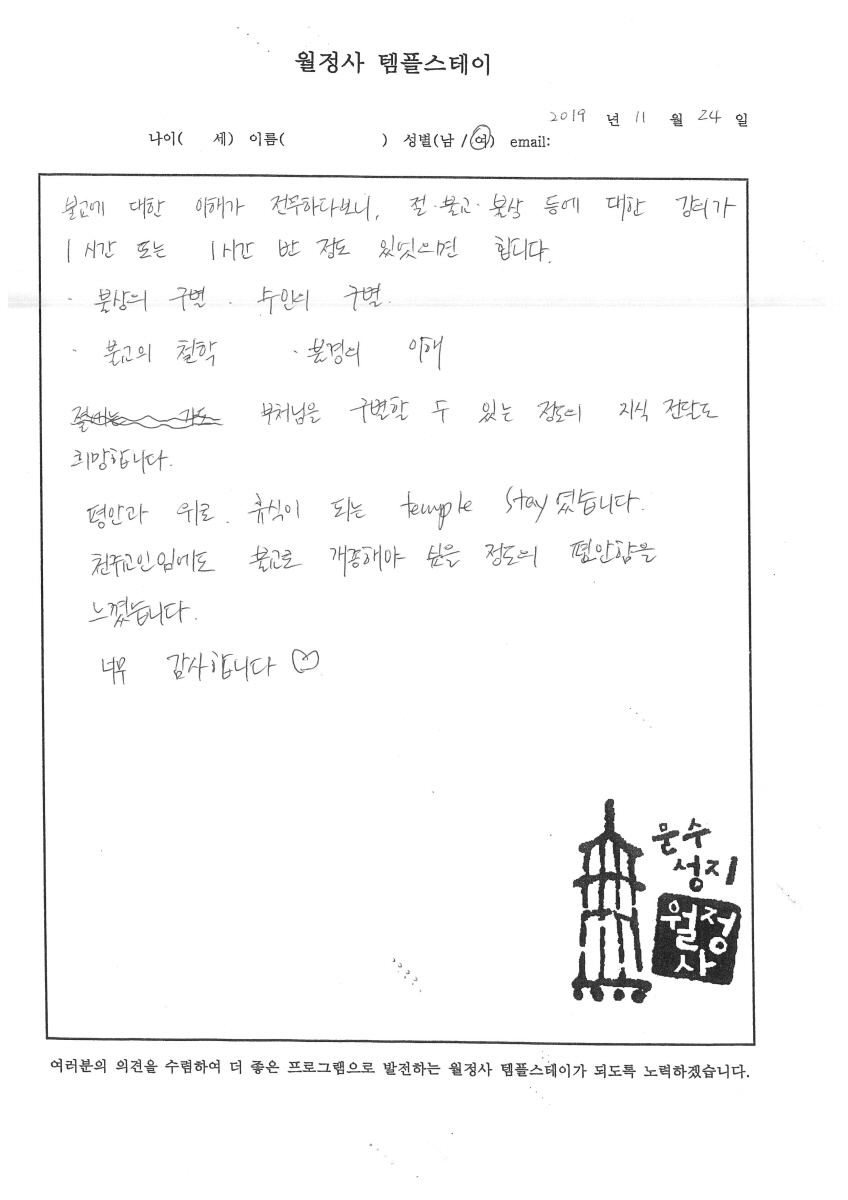 월정사 템플스테이
2019 년 11 월 24 일
나이(   세) 이름(          ) 성별(남 / 여) email:
불교에 대한 이해가 전무하다보니, 절·불교·불상 등에 대한 강의가
1 시간 또는 1시간 반 정도 있엇으면 힙디다.
· 불상의 구별 · 수인의 구별
· 불교의 철학 · 불경의 이해
부처님을 구별할 수 있는 정도의 지식 전달도
희망합니다.
평안과 위로. 휴식이 되는 temple stay 였습니다.
천주교인임에도 불교로 개종해야 싶을 정도의 평안함을
느꼈습니다.
너무 감사합니다 ♡
문수
성지
월정
사
여러분의 의견을 수렴하여 더 좋은 프로그램으로 발전하는 월정사 템플스테이가 되도록 노력하겠습니다.